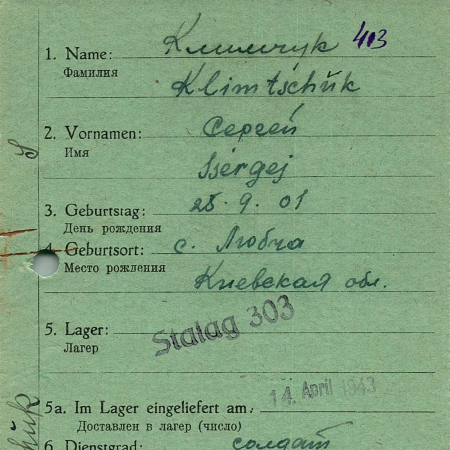 Климчук 413
1. Name:
Фамилия
Klimtschŭk
2. Vornamen: Сергей
Имя
Ssergej
3. Geburtstag: 28. 9. 01
День рождения
4. Geburtsort: с. Любча
Место рождения
Киевская обл.
5. Lager: Stalag 303
Лагер
14. April 1943
5a. Im Lager eingeliefert am:
Доставлен в лагер (число)
6. Dienstgrad: солдат